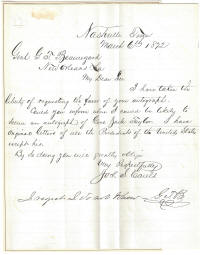 Nashville Tenn
March 6th 1872
Genl. G. T. Beauregard
New Orleans La
My Dear Sir
I have taken the
liberty of requesting the favor of your autograph.
Could you inform where I would be likely to
secure an autograph of Genl Zack Taylor. I have
original letters of all the Presidents of the United States
except his.
By so doing you will greatly oblige
Very Respectfully
Jos. S.
I regret I do not know
G.T.B.